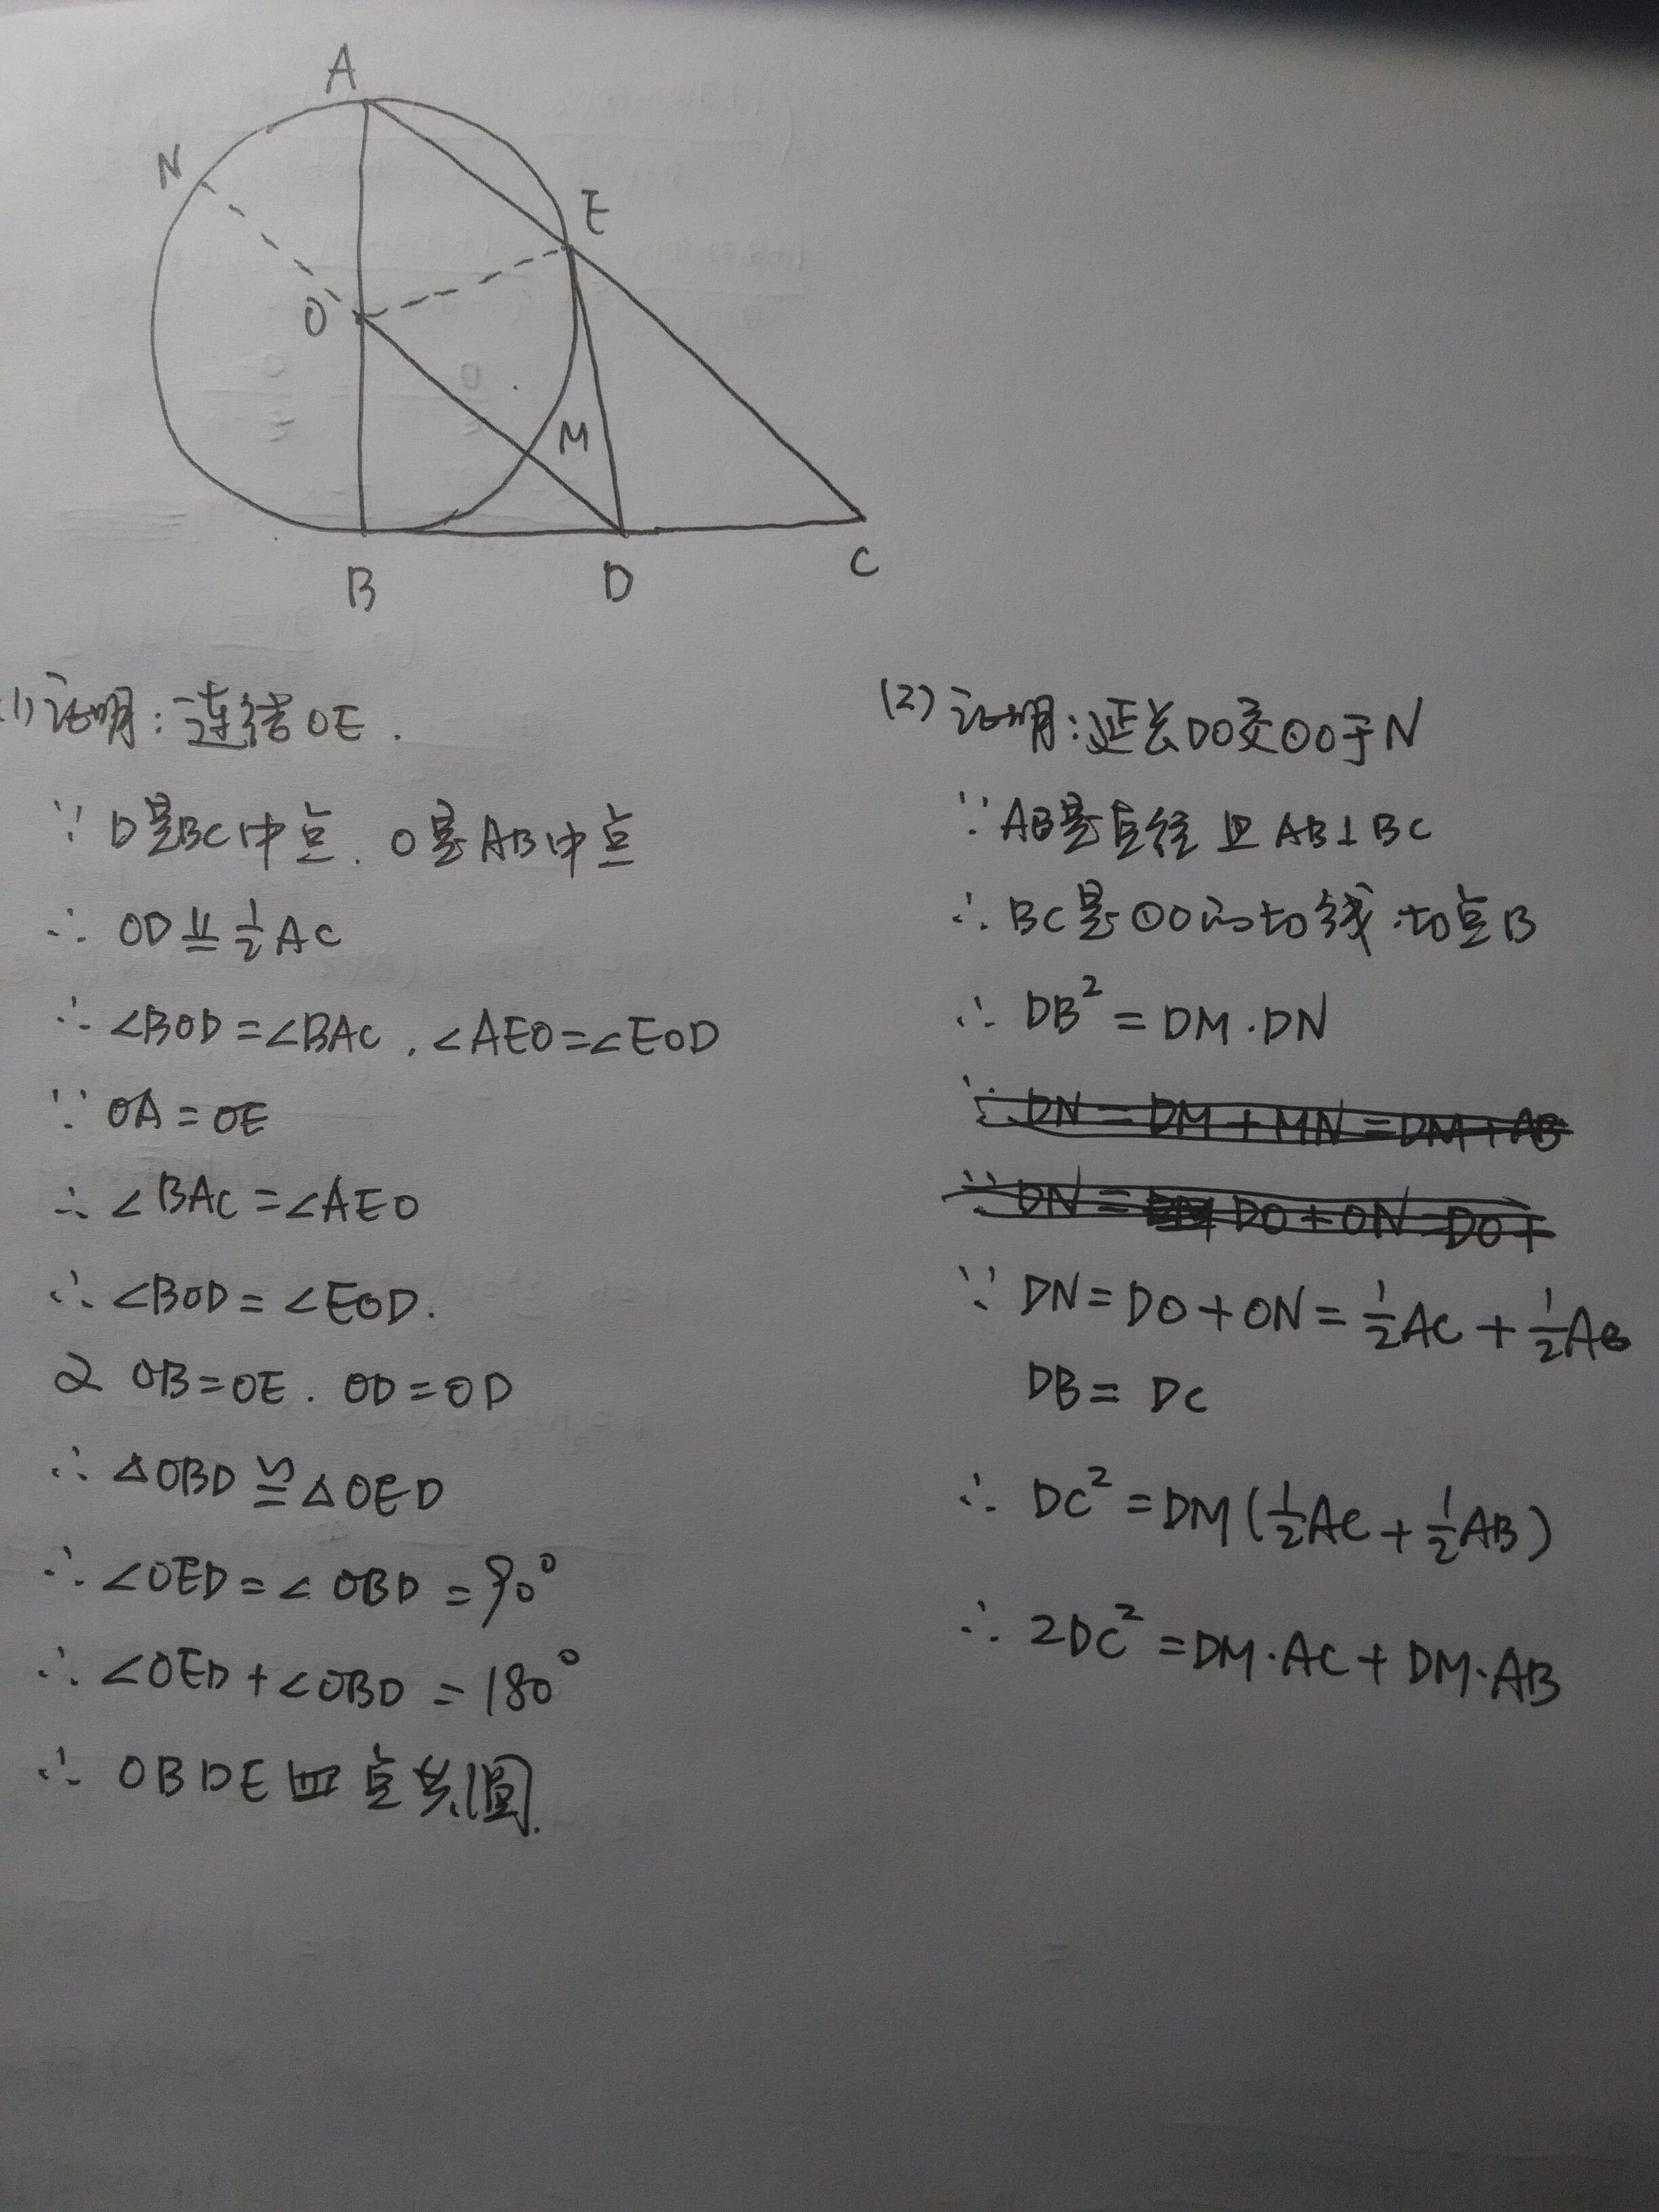 A
N
E
O
M
B
D
C
(1)证明:连结OE.
∵ D是BC中点. O是AB中点
∴ OD ∥= 1/2 AC
∴ ∠BOD=∠BAC, ∠AEO=∠EOD
∵ OA=OE
∴ ∠BAC=∠AEO
∴ ∠BOD=∠EOD.
又 OB=OE. OD=OD
∴ △OBD≌△OED
∴ ∠OED=∠OBD=90°
∴ ∠OED+∠OBD=180°
∴ OBDE四点共圆.
(2)证明:延长DO交⊙O于N
∵ AB是直径且AB⊥BC
∴ BC是⊙O的切线.切点B
∴ DB²=DM·DN
∵ DN=DM+MN=DM+AB
∵ DN=DO+ON=DO+
∵ DN=DO+ON=1/2 AC+1/2 AB
DB=DC
∴ DC²=DM(1/2 AC+1/2 AB)
∴ 2DC²=DM·AC+DM·AB